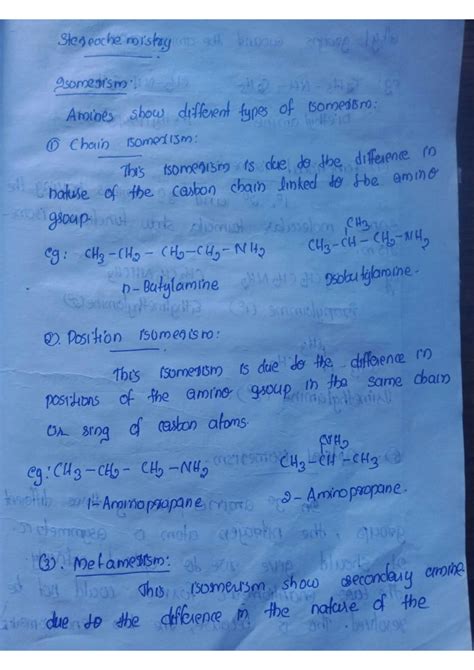 Stereochemistry
Isomerism:
Amines show different types of isomerism:
① Chain isomerism:
This isomerism is due to the difference in
nature of the carbon chain linked to the amino
group.
eg: CH3-CH2-CH2-CH2-NH2
CH3
CH3-CH-CH2-NH2
n-Butylamine
Isobutylamine.
②. Position isomerism:
This isomerism is due to the difference in
positions of the amino group in the same chain
or ring of carbon atoms.
eg: CH3-CH2-CH2-NH2
NH2
CH3-CH-CH3
1-Aminopropane
2-Aminopropane.
(3). Metamerism:
This isomerism show secondary amine
due to the difference in the nature of the